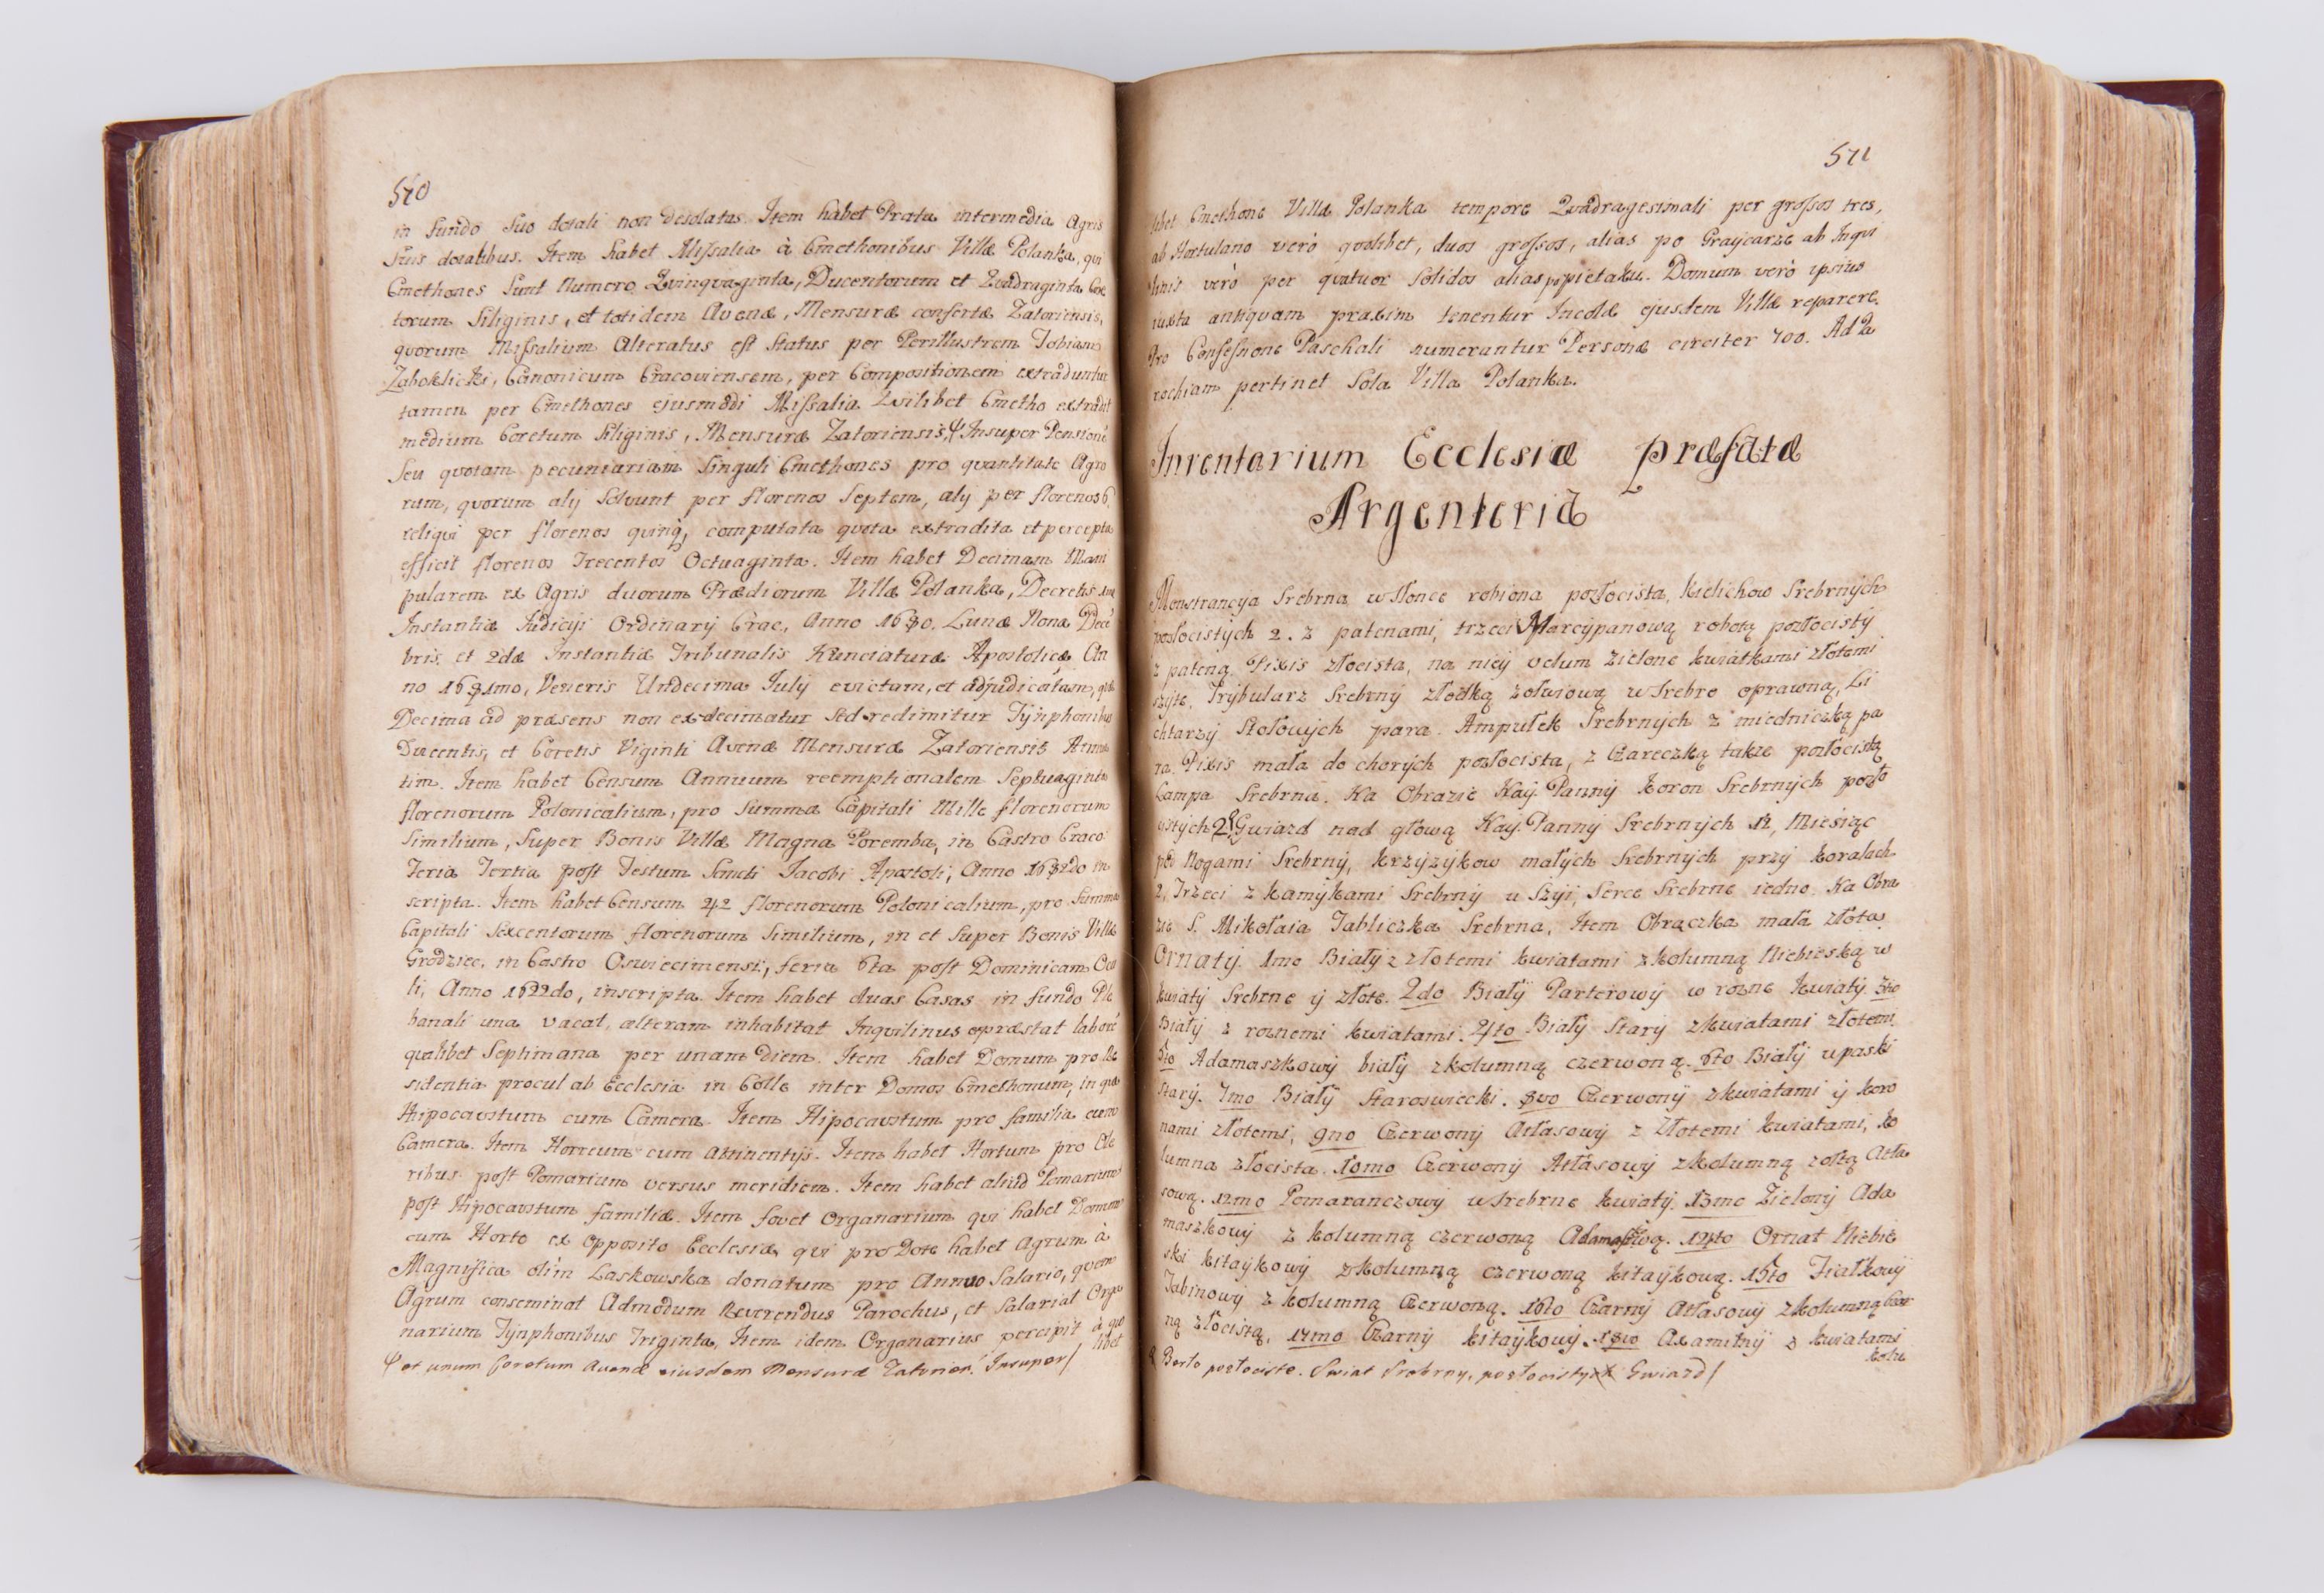 570
in fundo suo dotali non desolatas. Item habet Prata intermedia Agris
suis dotalibus. Item habet Missalia à Cmethonibus Villæ Polanka, qui
Cmethones sunt Numero Quinquaginta, Ducentorum et Quadraginta Core
torum Siliginis, et totidem Avenæ, Mensuræ confertæ Zatoriensis,
quorum Missalium Alteratus est status per Perillustrem Tobiam
Zaboklicki, Canonicum Cracoviensem, per Compositionem extraduntur
tamen per Cmethones ejusmodi Missalia Quilibet Cmetho extradit
medium Coretum Siliginis, Mensuræ Zatoriensis, Insuper Pensionē
seu quotam pecuniariam singuli Cmethones pro quantitate Agro
rum, quorum alÿ solvunt per florenos septem, alÿ per florenos 6,
reliqui per florenos quinq, computata quota extradita et percepta
efficit florenos Trecentos Octuaginta. Item habet Decimam Mani
pularem ex Agris duorum Prædiorum Villæ Polanka, Decretis
Instantiæ Judicÿi Ordinarÿ Crac., Anno 1680. Lunæ Nona Decē
bris. et 2dæ Instantiæ Tribunalis Nunciaturæ Apostolicæ An
no 1681mo, Veneris Undecima Julÿ evictam, et adjudicatam,
Decima ad præsens non ex decimatur sed redimitur Tÿnphonibus
Ducentis, et Coretis Viginti Avenæ Mensuræ Zatoriensis Annua
tim. Item habet Censum Annuum reemptionalem Septuaginta
florenorum Polonicalium, pro summa Capitali Mille florenorum
similium, super Bonis Villæ Magna Poremba, in Castro Craco.
Feria Tertia post Festum Sancti Jacobi Apostoli, Anno 1682do in
scripta. Item habet Censum 42 florenorum Polonicalium, pro summa
Capitali Sexcentorum florenorum similium, in et super Bonis Villæ
Grodziec, in Castro Oswiecimensi, feria 6ta post Dominicam Ocu
li, Anno 1622do, inscripta. Item habet duas Casas in fundo Ple
banali una vacat, alteram inhabitat Inquilinus præstat laborē
qualibet Septimana per unam diem. Item habet Domum pro Re
sidentia procul ab Ecclesia in Colle inter Domos Cmethonum, in qua
Hipocaustum cum Camera. Item Hipocaustum pro familia cum
Camera. Item Horreum cum Attinentÿs. Item habet Hortum pro Ole
ribus post Pomarium versus meridiem. Item habet aliud Pomarium
post Hipocaustum familiæ. Item fovet Organarium qui habet Domum
cum Horto ex opposito Ecclesiæ, qui pro Dote habet Agrum à
Magnifica olim Laskowska donatum pro Annuo Salario, quem
Agrum conseminat Admodum Reverendus Parochus, et salariat Orga
narium Tÿnphonibus Triginta, Item idem Organarius percipit à quo
libet
et unum Coretum Avenæ eiusdem Mensuræ Zatorien. Insuper/
571
libet Cmethone Villæ Polanka tempore Quadragesimali per grossos tres,
ab Hortulano verò quolibet, duos grossos, alias po Graÿcarze ab Inqui
linis verò per quatuor solidos alias po pietaku. Domum verò ipsius
iuxta antiquam praxim tenentur Incolæ ejusdem Villæ reparere.
Pro Confessione Paschali numerantur Personæ circiter 700. Ad Pa
rochiam pertinet sola Villa Polanka.
Inventarium Ecclesiæ præfatæ
Argenteria
Monstrancya Srebrna w słonce robiona pozłocista, Kielichow Srebrnÿch
pozłocistÿch 2. z patenami, trzeci Marcÿpanową robotą pozłocistÿ
z pateną. Pixis złocista, na nieÿ velum zielone kwiatkami złotemi
szÿte, Trÿbularz Srebrnÿ z łodką żołwiową w srebro oprawną, Li
chtarzÿ Stołowÿch para. Ampułek Srebrnÿch z miedniczką pa
ra. Pixis mała do chorÿch pozłocista, z Czareczką także pozłocistą
Lampa Srebrna. Na Obrazie Naÿ. Pannÿ koron Srebrnÿch pozło
cistÿch 2. Gwiazd nad głową Naÿ. Pannÿ Srebrnÿch 12, Miesiąc
pod Nogami Srebrnÿ, krzÿzÿkow małÿch Srebrnÿch przÿ koralach
2, Trzeci z kamÿkami Srebrnÿ u Szÿi, Serce Srebrne iedno. Na Obra
zie S. Mikołaia Tabliczka Srebrna, Item Obrączka mała złota.
Ornatÿ. 1mo Białÿ z złotemi kwiatami z kolumną Niebieską w
kwiatÿ Srebrne ÿ złote. 2do Białÿ Parterowÿ w rożne kwiatÿ. 3tio
Białÿ z roznemi kwiatami. 4to Białÿ Starÿ z kwiatami złotemi.
5to Adamaszkowÿ białÿ z kolumną czerwoną. 6to Białÿ w paski
starÿ. 7mo Białÿ Staroswiecki. 8vo Czerwonÿ z kwiatami ÿ koro
nami złotemi, 9no Czerwonÿ Atłasowÿ z złotemi kwiatami, ko
lumna złocista. 10mo Czerwonÿ Atłasowÿ z kolumną żołtą Atła
sową. 12mo Pomaranczowÿ w srebrne kwiatÿ. 13mo Zielonÿ Ada
maszkowÿ z kolumną czerwoną Adamaszkową. 14to Ornat Niebie
ski kitaÿkowÿ z kolumną czerwoną kitaÿkową. 15to Fiałkowÿ
Tabinowÿ z kolumną Czerwoną. 16to Czarnÿ Atłasowÿ z kolumną Czar
ną złocistą, 17mo Czarnÿ kitaÿkowÿ. 18vo Axamitnÿ z kwiatami
kolu
Berło pozłociste. Swiat Srebrny, pozłocisty Gwiazd/